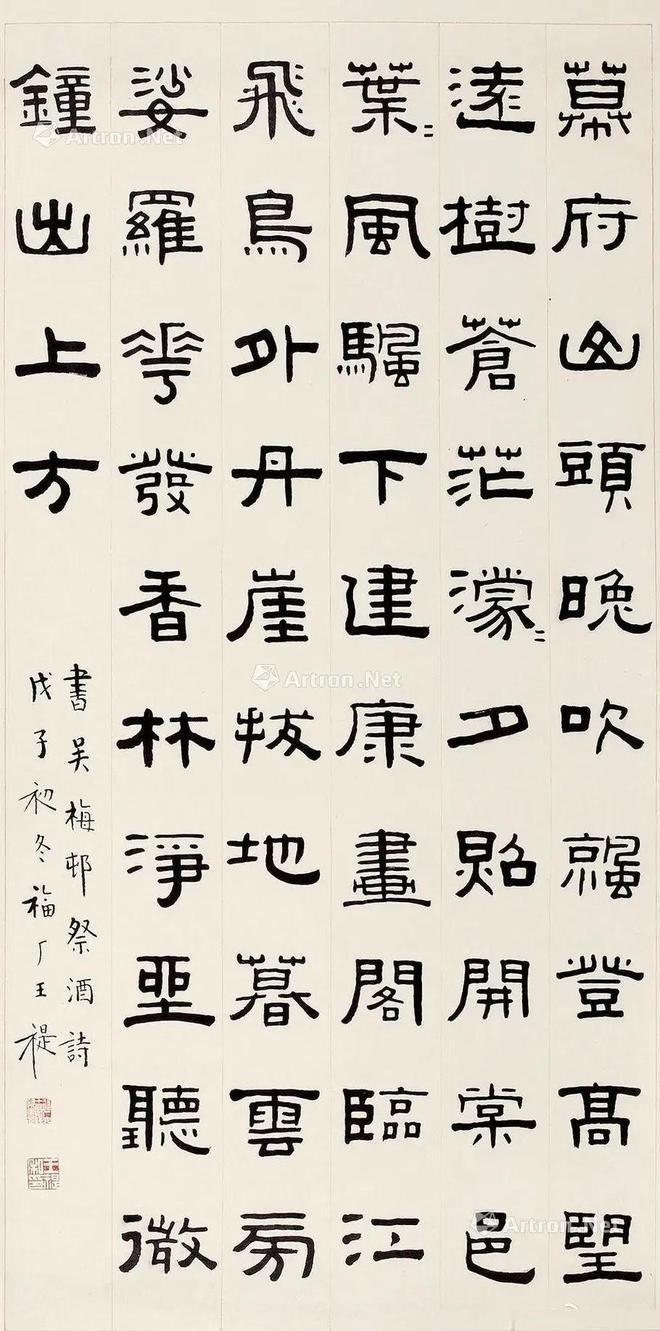 幕府山頭晚吹強登高望
遠樹蒼茫濛〻夕照開棠邑
葉〻風颿下建康畫閣臨江
飛鳥外丹崖拔地暮雲房
娑羅華發香林淨坐聽微
鐘出上方
書吳梅邨祭酒詩
戊子初冬福厂王禔
Artron.Net
Artron.Net
Artron.Net